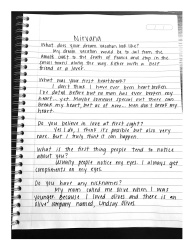 Nirvana
What does your dream vacation look like?
My dream vacation would be to surf from the
down the coast of Mexico and stop in the
small towns along the way either with a best
friend or a lover.
What was your first heartbreak?
I don't think I have ever been heartbroken.
I've dated before but no man has ever broken my
heart. yet. Maybe someone special out there can
break my heart, but as of now. Men don't break my
heart.
Do you believe in love at first sight?
Yes I do, I think it's possible but also very
rare. But I truly think it can happen.
What is the first thing people tend to notice
about you?
Usually people notice my eyes. I always get
compliments on my eyes.
Do you have any nicknames?
My moms called me Olive when I was
younger because I loved olives and there is an
olive company named, Lindsay Olives.